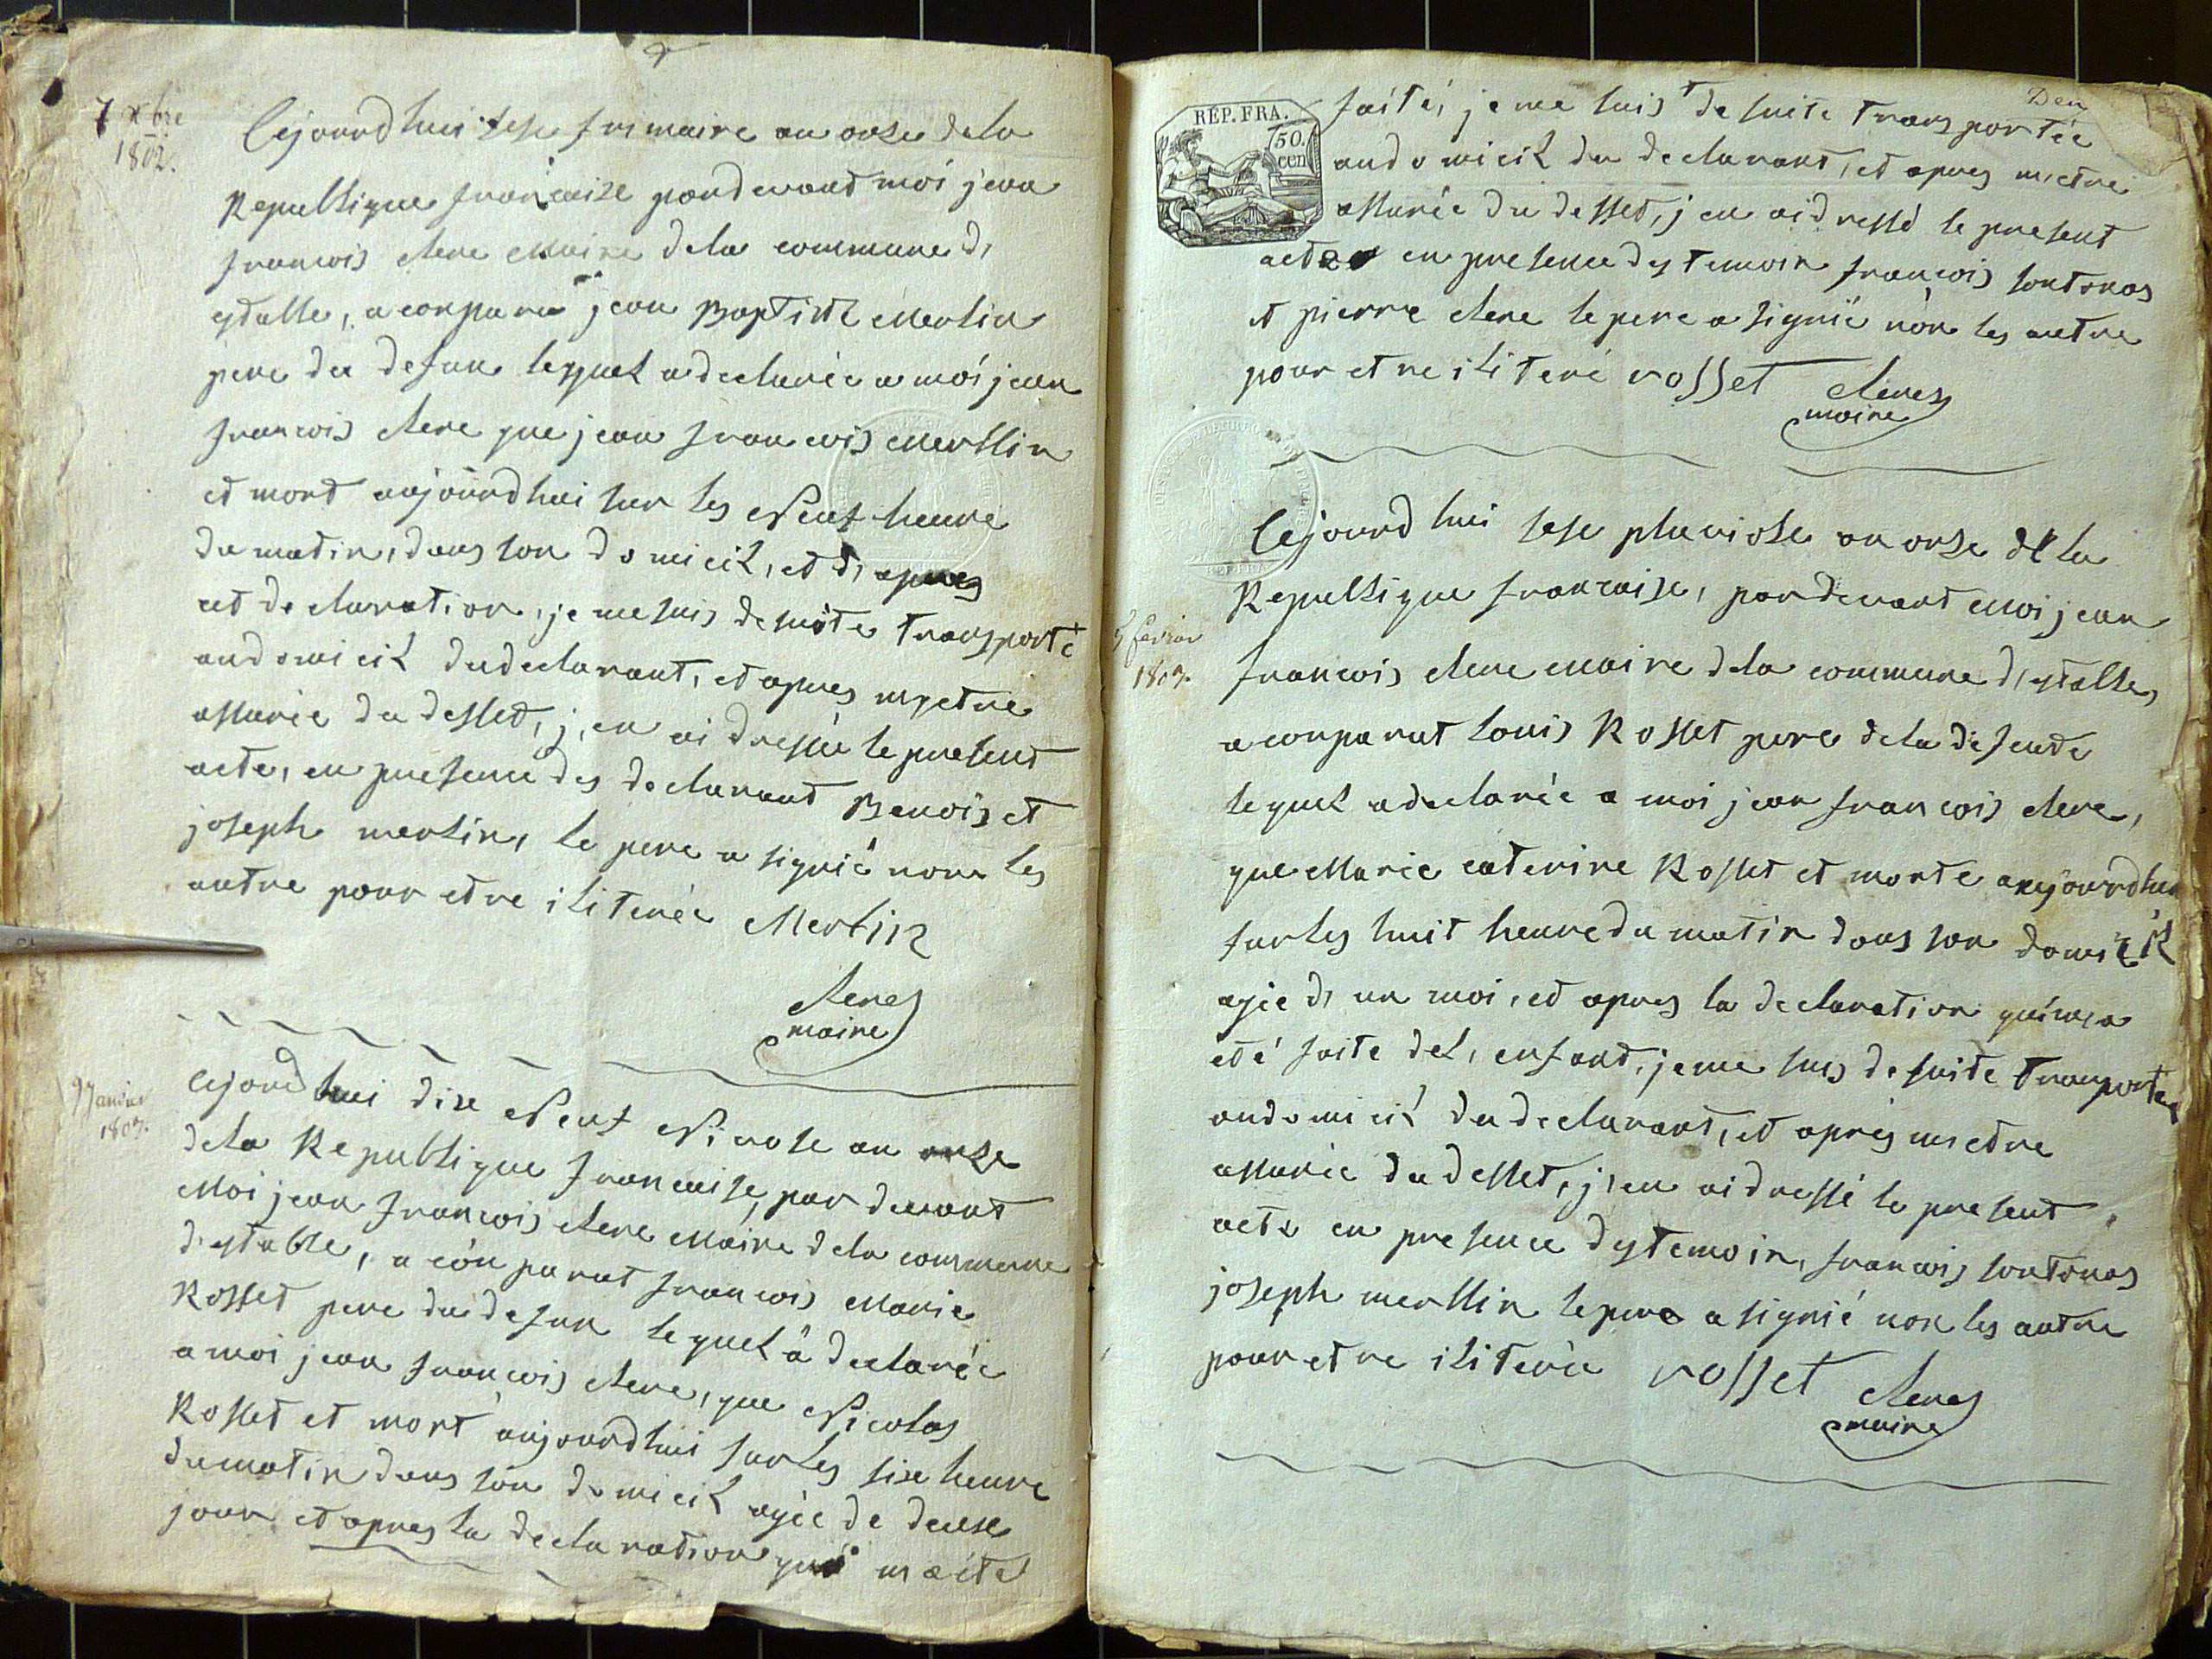 7 xbre
1802.
Cejourdhui sese frimaire an onse dela
Republique francaise pardevant moi jean
francois clere Maire dela commune d,
estable, a conparu jean Baptiste Merlin
pere du defun lequel a declarée a moi jean
francois clere que jean francois Merllin
et mort aujourdhui sur les Neuf heure
du matin, dans son domicil, et d, apres
cet declaration, je me suis desuite transporté
audomicil dudeclarant, et apres mętre
assurée du desset, j,en ai dressée le present
acte, en presence des declarant Benois et
joseph merlin, le pere a signié non les
autre pour etre iliterée Merlin
cleres
maire
9 Janvier
1803.
Cejourdhui dixe Neuf Nivose an onze
dela Republique francaise, par devant
Moi jean francois clere Maire dela commune
d,estable, a conparut francois Marie
Rosset pere du defun lequel à declarée
a moi jean francois clere, que Nicolas
Rosset et mort aujourdhui surles sixe heure
dumatin dans son domicil agée de deuse
jour et apres la declaration qui m aété
REP. FRA.
50.
cen
Deu
faité, je me suis de suite transportée
audomicil du declarant, et apres m,etre
assurée du desset, j en ai dressé le present
acte en presence des temoin francois fontonas
et pierre clere le pere a signié non les autre
pour etre iliteré rosset cleres
maire
5 fevrier
1803.
Cejourdhui sese pluviose an onse de la
Republique francaise, pardevant Moi jean
francois clere Maire dela commune d,estalles
a conparut Louis Rosset pere dela defente
lequel a declarée a moi jean francois clere,
que Marie caterine Rosset et morte aujourdhui
surles huit heure du matin dans son domicil
agée d, un moi, et apres la declaration qui m,a
eté faite del, enfant, je me suis de suite transportée
audomicil du declarant, et après m etre
assurée du desset, j,en ai dressé le present
acte en presence des temoin, francois fontonas
joseph merllin le pere a signié non les autre
pour etre iliterée rosset cleres
maire